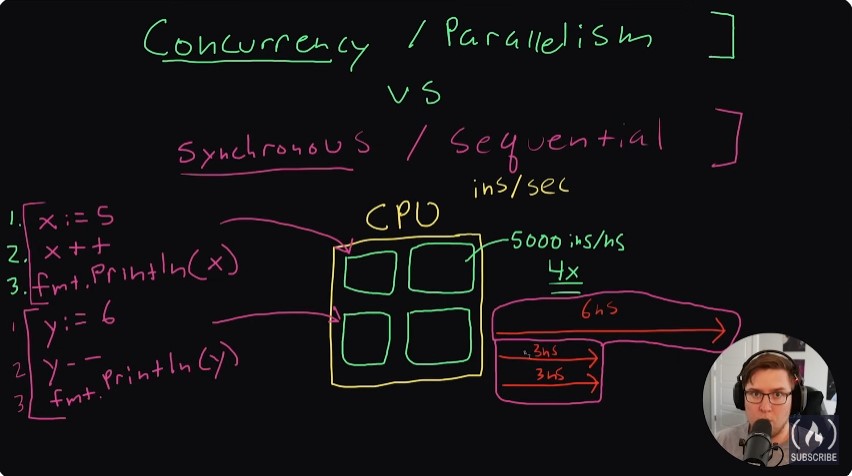 Concurrency / Parallelism ]
vs
synchronous / sequential ]
ins/sec
CPU
1. x := 5
2. x++
3. fmt.Println(x)
1 y := 6
2 y--
3 fmt.Println(y)
5000 ins/ns
4x
6ns
3ns
3ns
SUBSCRIBE